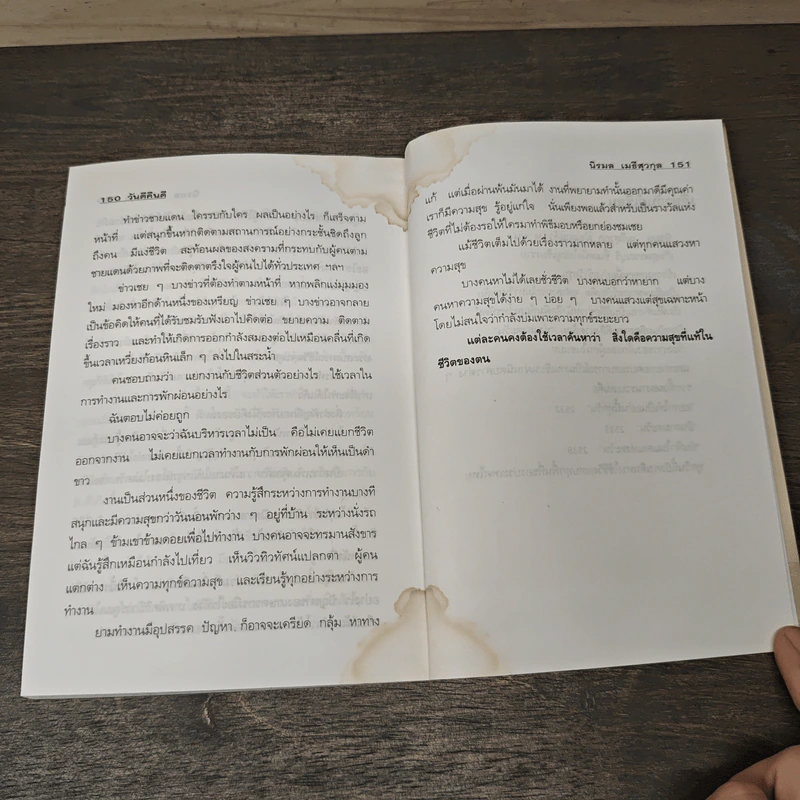 150 วันดีคืนดี
ทำข่าวชายแดน ใครรบกับใคร ผลเป็นอย่างไร ก็เสร็จตาม
หน้าที่ แต่สนุกขึ้นหากติดตามสถานการณ์อย่างกระชั้นชิดถึงลูก
ถึงคน มีแง่ชีวิต สะท้อนผลของสงครามที่กระทบกับผู้คนตาม
ชายแดนด้วยภาพที่จะติดตาตรึงใจผู้คนไปได้ทั่วประเทศ ฯลฯ
ข่าวเชย ๆ บางข่าวที่ต้องทำตามหน้าที่ หากพลิกแง่มุมมอง
ใหม่ มองหาอีกด้านหนึ่งของเหรียญ ข่าวเชย ๆ บางข่าวอาจกลาย
เป็นข้อคิดให้คนที่ได้รับชมรับฟังเอาไปคิดต่อ ขยายความ ติดตาม
เรื่องราว และทำให้เกิดการออกกำลังสมองต่อไปเหมือนคลื่นที่เกิด
ขึ้นเวลาเหวี่ยงก้อนหินเล็ก ๆ ลงไปในสระน้ำ
คนชอบถามว่า แยกงานกับชีวิตส่วนตัวอย่างไร ใช้เวลาใน
การทำงานและการพักผ่อนอย่างไร
ฉันตอบไม่ค่อยถูก
บางคนอาจจะว่าฉันบริหารเวลาไม่เป็น คือไม่เคยแยกชีวิต
ออกจากงาน ไม่เคยแยกเวลาทำงานกับการพักผ่อนให้เห็นเป็นดำ
ขาว
งานเป็นส่วนหนึ่งของชีวิต ความรู้สึกระหว่างการทำงานบางที
สนุกและมีความสุขกว่าวันนอนพักว่าง ๆ อยู่ที่บ้าน ระหว่างนั่งรถ
ไกล ๆ ข้ามเขาข้ามดอยเพื่อไปทำงาน บางคนอาจจะทรมานสังขาร
แต่ฉันรู้สึกเหมือนกำลังไปเที่ยว เห็นวิวทิวทัศน์แปลกตา ผู้คน
แตกต่าง เห็นความทุกข์ความสุข และเรียนรู้ทุกอย่างระหว่างการ
ทำงาน
ยามทำงานมีอุปสรรค ปัญหา ก็อาจจะเครียด กลุ้ม หาทาง
นิรมล เมธีสุวกุล 151
แก้ แต่เมื่อผ่านพ้นมันมาได้ งานที่พยายามทำนั้นออกมาดีมีคุณค่า
เราก็มีความสุข รู้อยู่แก่ใจ นั่นเพียงพอแล้วสำหรับเป็นรางวัลแห่ง
ชีวิตที่ไม่ต้องรอให้ใครมาทำพิธีมอบหรือยกย่องชมเชย
แม้ชีวิตเต็มไปด้วยเรื่องราวมากหลาย แต่ทุกคนแสวงหา
ความสุข
บางคนหาไม่ได้เลยชั่วชีวิต บางคนบอกว่าหายาก แต่บาง
คนหาความสุขได้ง่าย ๆ บ่อย ๆ บางคนแสวงแต่สุขเฉพาะหน้า
โดยไม่สนใจว่ากำลังบ่มเพาะความทุกข์ระยะยาว
แต่ละคนคงต้องใช้เวลาค้นหาว่า สิ่งใดคือความสุขที่แท้ใน
ชีวิตของตน